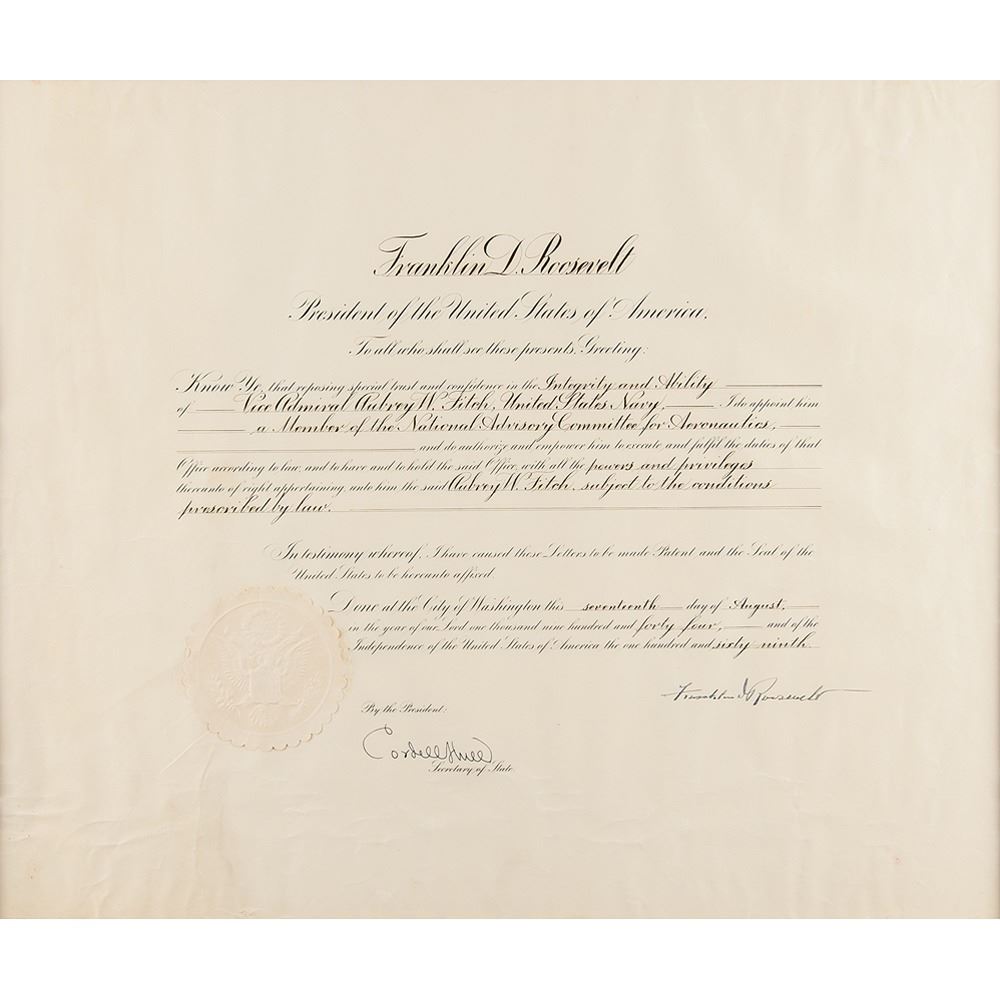 Franklin D. Roosevelt
President of the United States of America.
To all who shall see these presents, Greeting:
Know Ye, that reposing special trust and confidence in the Integrity and Ability
of Vice Admiral Aubrey W. Fitch, United States Navy, I do appoint him
a Member of the National Advisory Committee for Aeronautics,
and do authorize and empower him to execute and fulfil the duties of that
Office according to law, and to have and to hold the said Office, with all the powers and privileges
thereunto of right appertaining, unto him the said Aubrey W. Fitch, subject to the conditions
prescribed by law.
In testimony whereof, I have caused these Letters to be made Patent and the Seal of the
United States to be hereunto affixed.
Done at the City of Washington this seventeenth day of August,
in the year of our Lord one thousand nine hundred and forty four, and of the
Independence of the United States of America the one hundred and sixty ninth.
Franklin D Roosevelt
By the President:
Cordell Hull
Secretary of State.